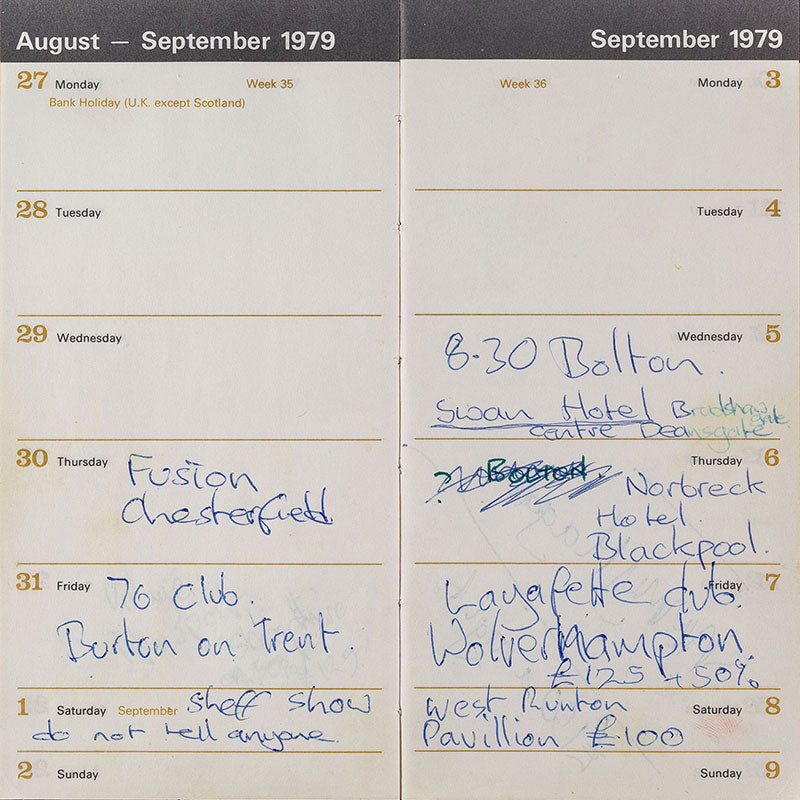 August — September 1979
27 Monday Week 35
Bank Holiday (U.K. except Scotland)
28 Tuesday
29 Wednesday
30 Thursday Fusion
Chesterfield
31 Friday 76 Club.
Burton on Trent.
1 Saturday September Sheff show
do not tell anyone.
2 Sunday
September 1979
Week 36 Monday 3
Tuesday 4
Wednesday 5
8.30 Bolton.
Swan Hotel Bradshawgate
centre Deansgate
Thursday 6
? Bolton
Norbreck
Hotel.
Blackpool.
Friday 7
Layafette club.
Wolverhampton.
£125 + 50%
West Runton
Saturday 8
Pavillion £100
Sunday 9